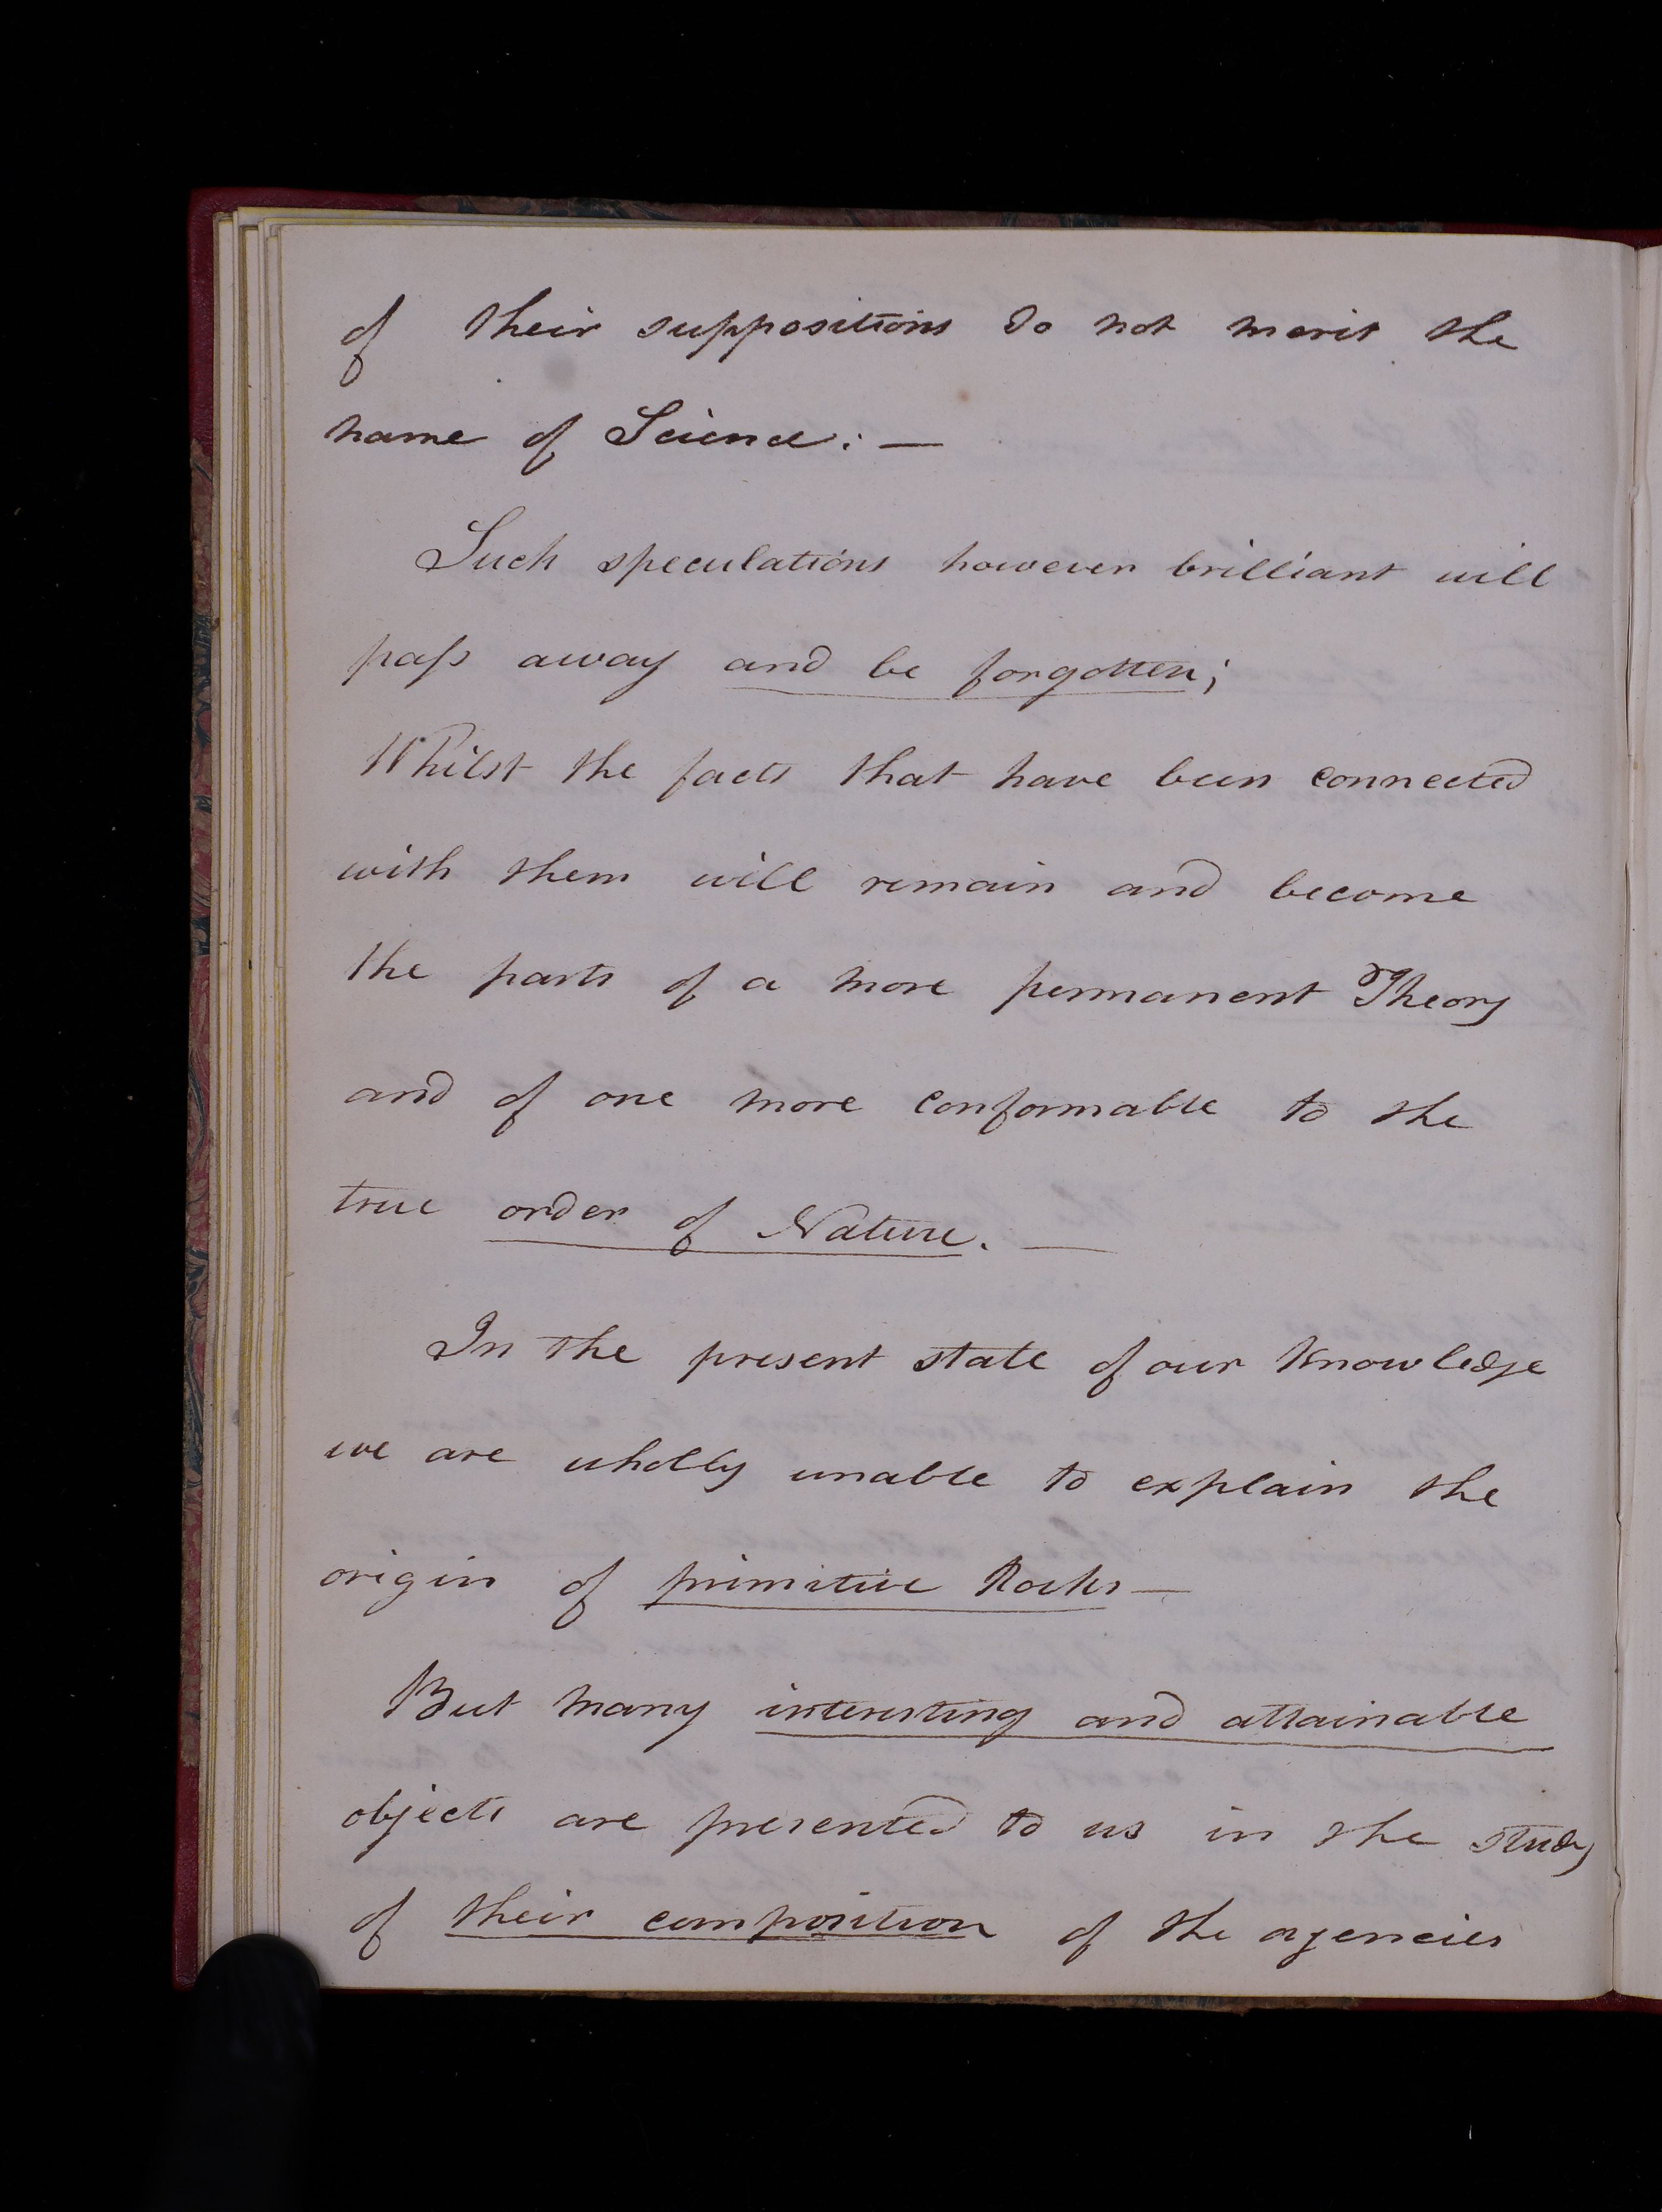 of their suppositions do not merit the
name of Science: —
Such speculations however brilliant will
paſs away and be forgotten;
Whilst the facts that have been connected
with them will remain and become
the parts of a more permanent Theory
and of one more conformable to the
true order of Nature. —
In the present state of our knowledge
we are wholly unable to explain the
origin of primitive Rocks —
But many interesting and attainable
objects are presented to us in the study
of their composition of the agencies